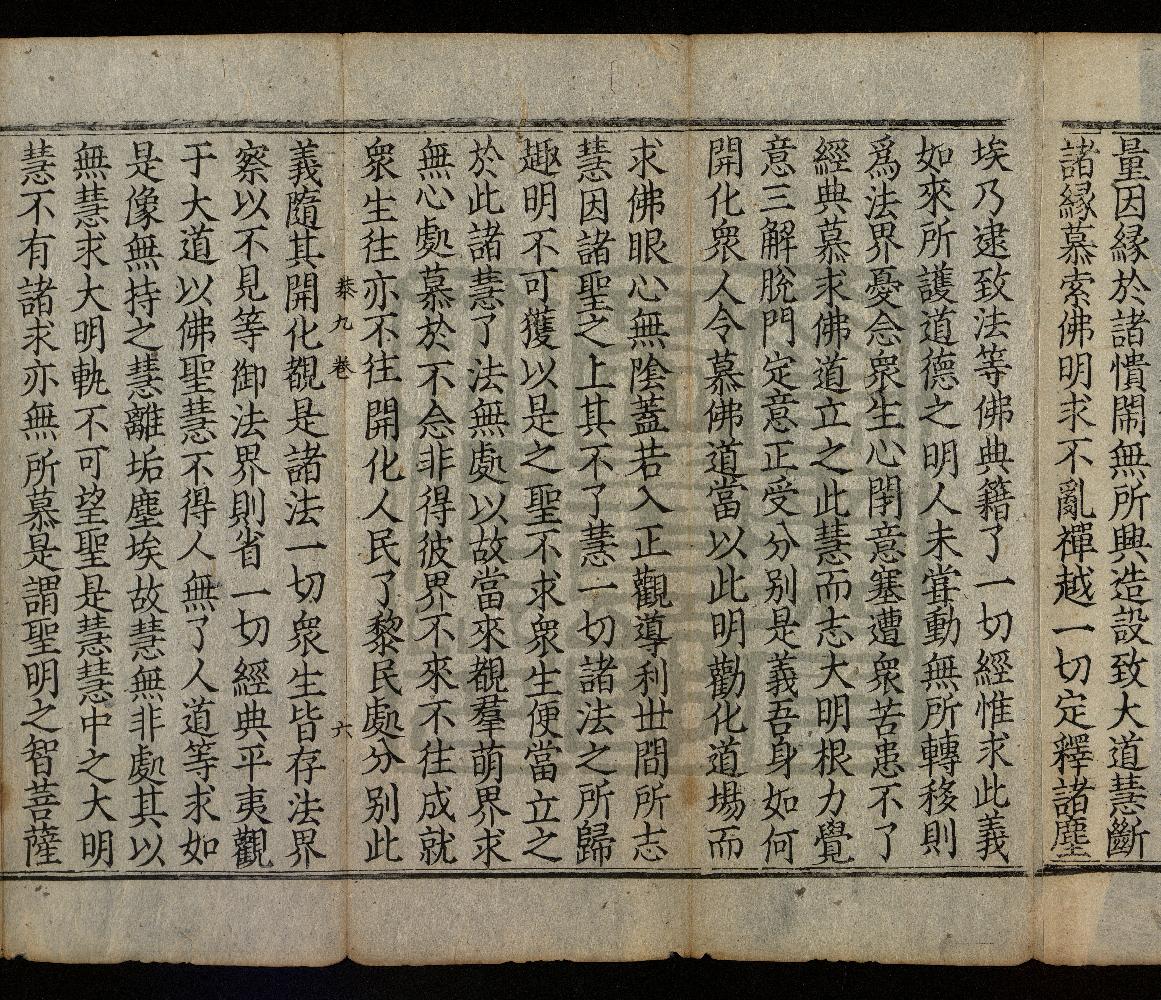 量因緣於諸憒閙無所興造設致大道慧斷
諸緣慕索佛明求不亂禪越一切定釋諸塵
埃乃逮致法等佛典籍了一切經惟求此義
如來所護道德之明人未甞動無所轉移則
爲法界憂念衆生心閉意塞遭衆苦患不了
經典慕求佛道立之此慧而志大明根力覺
意三解脫門定意正受分别是義吾身如何
開化衆人令慕佛道當以此明勸化道場而
求佛眼心無陰蓋若入正觀導利世間所志
慧因諸聖之上其不了慧一切諸法之所歸
趣明不可獲以是之聖不求衆生便當立之
於此諸慧了法無處以故當來覩羣萌界求
無心處慕於不念非得彼界不來不往成就
衆生往亦不往開化人民了黎民處分别此
九卷
六
義隨其開化覩是諸法一切衆生皆存法界
察以不見等御法界則省一切經典平夷觀
于大道以佛聖慧不得人無了人道等求如
是像無持之慧離垢塵埃故慧無非處其以
無慧求大明軌不可望聖是慧慧中之大明
慧不有諸求亦無所慕是謂聖明之智菩薩